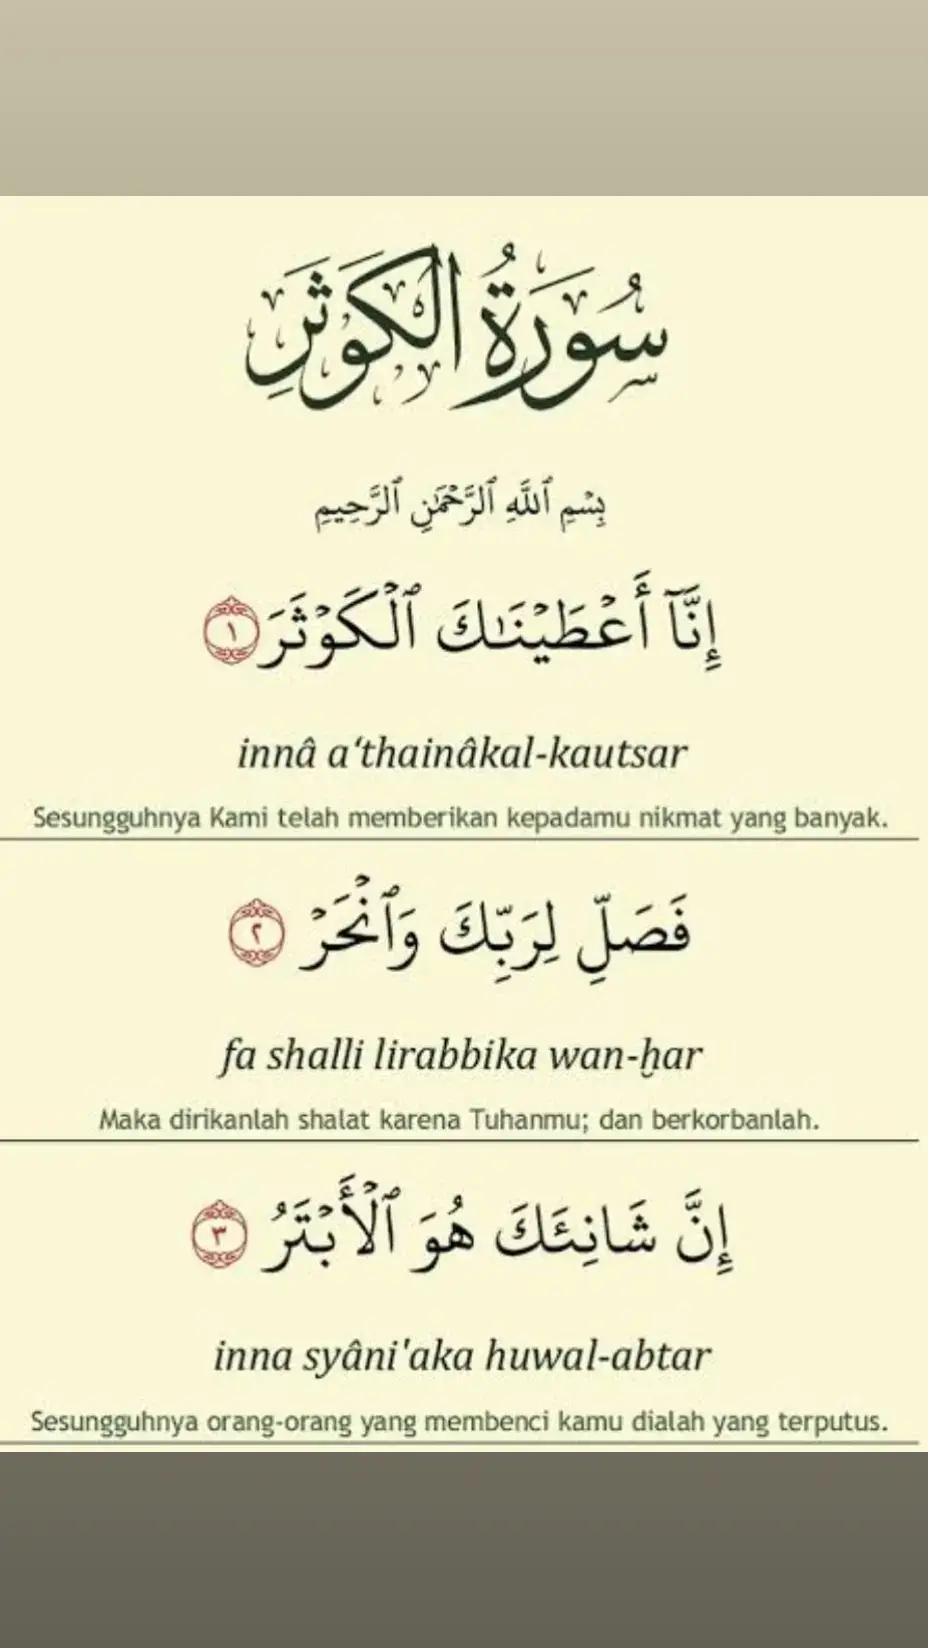 سُورَةُ الْكَوْثَرِ
بِسْمِ ٱللَّهِ ٱلرَّحْمَٰنِ ٱلرَّحِيمِ
إِنَّآ أَعْطَيْنَـٰكَ ٱلْكَوْثَرَ ١
innâ a‘thainâkal-kautsar
Sesungguhnya Kami telah memberikan kepadamu nikmat yang banyak.
فَصَلِّ لِرَبِّكَ وَٱنْحَرْ ٢
fa shalli lirabbika wan-ḫar
Maka dirikanlah shalat karena Tuhanmu; dan berkorbanlah.
إِنَّ شَانِئَكَ هُوَ ٱلْأَبْتَرُ ٣
inna syâni'aka huwal-abtar
Sesungguhnya orang-orang yang membenci kamu dialah yang terputus.